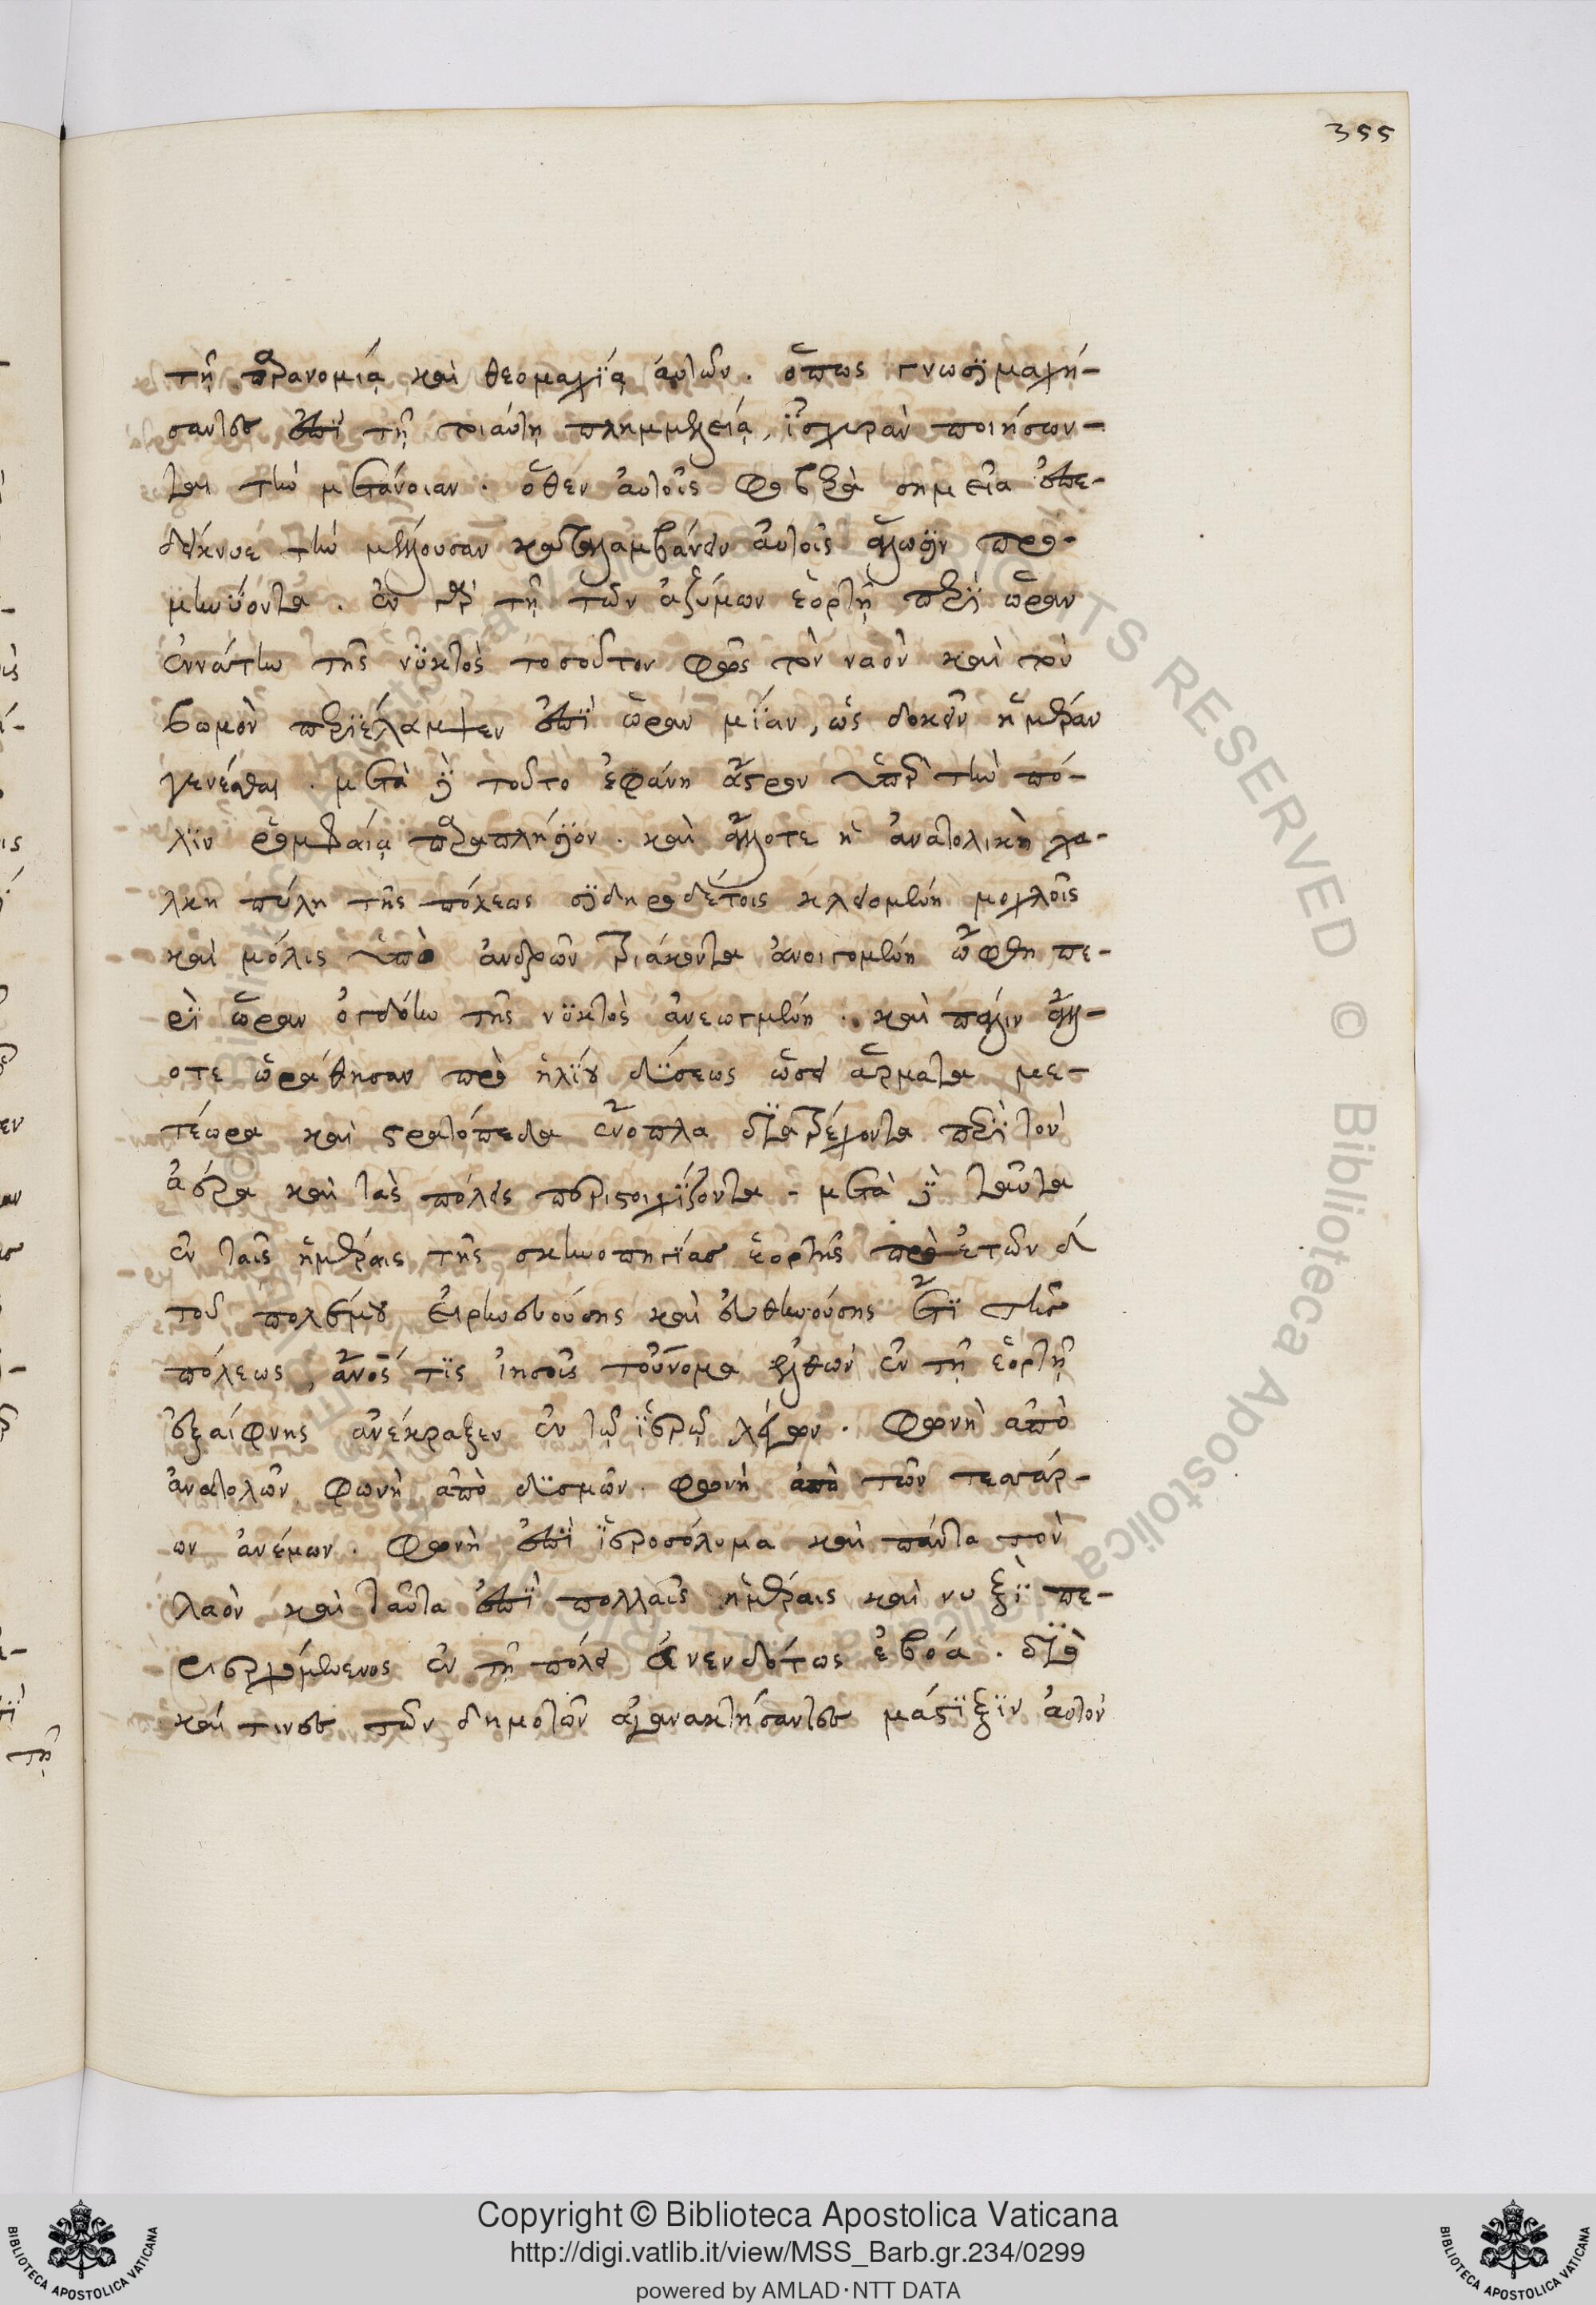 355
τῆ παρανομία καὶ θεομαχία αὐτῶν. ὅπως γνωσιμαχή-
σαντες ἐπὶ τῆ τοιαύτη πλημμελεία, ἰσχυρὰν ποιήσων-
ται τὴν μετάνοιαν. ὅθεν αὐτοῖς φοβερὰ σημεῖα ἐπε-
δείκνυε τὴν μέλλουσαν καταλαμβάνειν αὐτοῖς ἅλωσιν προ-
μηνύοντα. ἐν γὰρ τῆ τῶν ἀζύμων ἑορτῆ περὶ ὥραν
ἐννάτην τῆς νυκτὸς τοσοῦτον φῶς τὸν ναὸν καὶ τὸν
βωμὸν περιέλαμψεν ἐπὶ ὥραν μίαν, ὡς δοκεῖν ἡμέραν
γενέσθαι. μετὰ δὲ τοῦτο ἐφάνη ἄστρον ὑπὲρ τὴν πό-
λιν ῥομφαία παραπλήσιον. καὶ ἄλλοτε ἡ ἀνατολικὴ χα-
λκῆ πύλη τῆς πόλεως σιδηροδέτοις κλειομένη μοχλοῖς
καὶ μόλις ὑπὸ ἀνδρῶν τριάκοντα ἀνοιγομένη ὤφθη πε-
ρὶ ὥραν ὀγδόην τῆς νυκτὸς ἀνεωγμένη. καὶ πάλιν ἄλλ-
οτε ὡράθησαν πρὸ ἡλίου δύσεως ὡσεὶ ἅρματα με-
τέωρα καὶ στρατόπεδα ἔνοπλα διατρέχοντα περὶ τὸν
ἀέρα καὶ τὰς πόλεις περιστοιχίζοντα - μετὰ δὲ ταῦτα
ἐν ταῖς ἡμέραις τῆς σκηνοπηγίας ἑορτῆς πρὸ ἐτῶν δ
τοῦ πολέμου εἰρηνευούσης καὶ εὐθηνούσης ἔτι τῆς
πόλεως, ἄνος τὶς ἰησοῦς τοὔνομα ἐλθὼν ἐν τῆ ἑορτῆ
ἐξαίφνης ἀνέκραξεν ἐν τῷ ἱερῷ λέγων. φωνὴ ἀπὸ
ἀνατολῶν φωνὴ ἀπὸ δυσμῶν. φωνὴ ἀπὸ τῶν τεσσάρ-
ων ἀνέμων. φωνὴ ἐπὶ ἱεροσόλυμα καὶ πάντα τὸν
λαὸν καὶ ταῦτα ἐπὶ πολλαῖς ἡμέραις καὶ νυξὶ πε-
ριερχόμενος ἐν τῆ πόλει ἀνενδότως ἐβόα. διὸ
καί τινες τῶν δημοτῶν ἀγανακτήσαντες μάστιξιν αὐτὸν
Copyright © Biblioteca Apostolica Vaticana
http://digi.vatlib.it/view/MSS_Barb.gr.234/0299
powered by AMLAD·NTT DATA